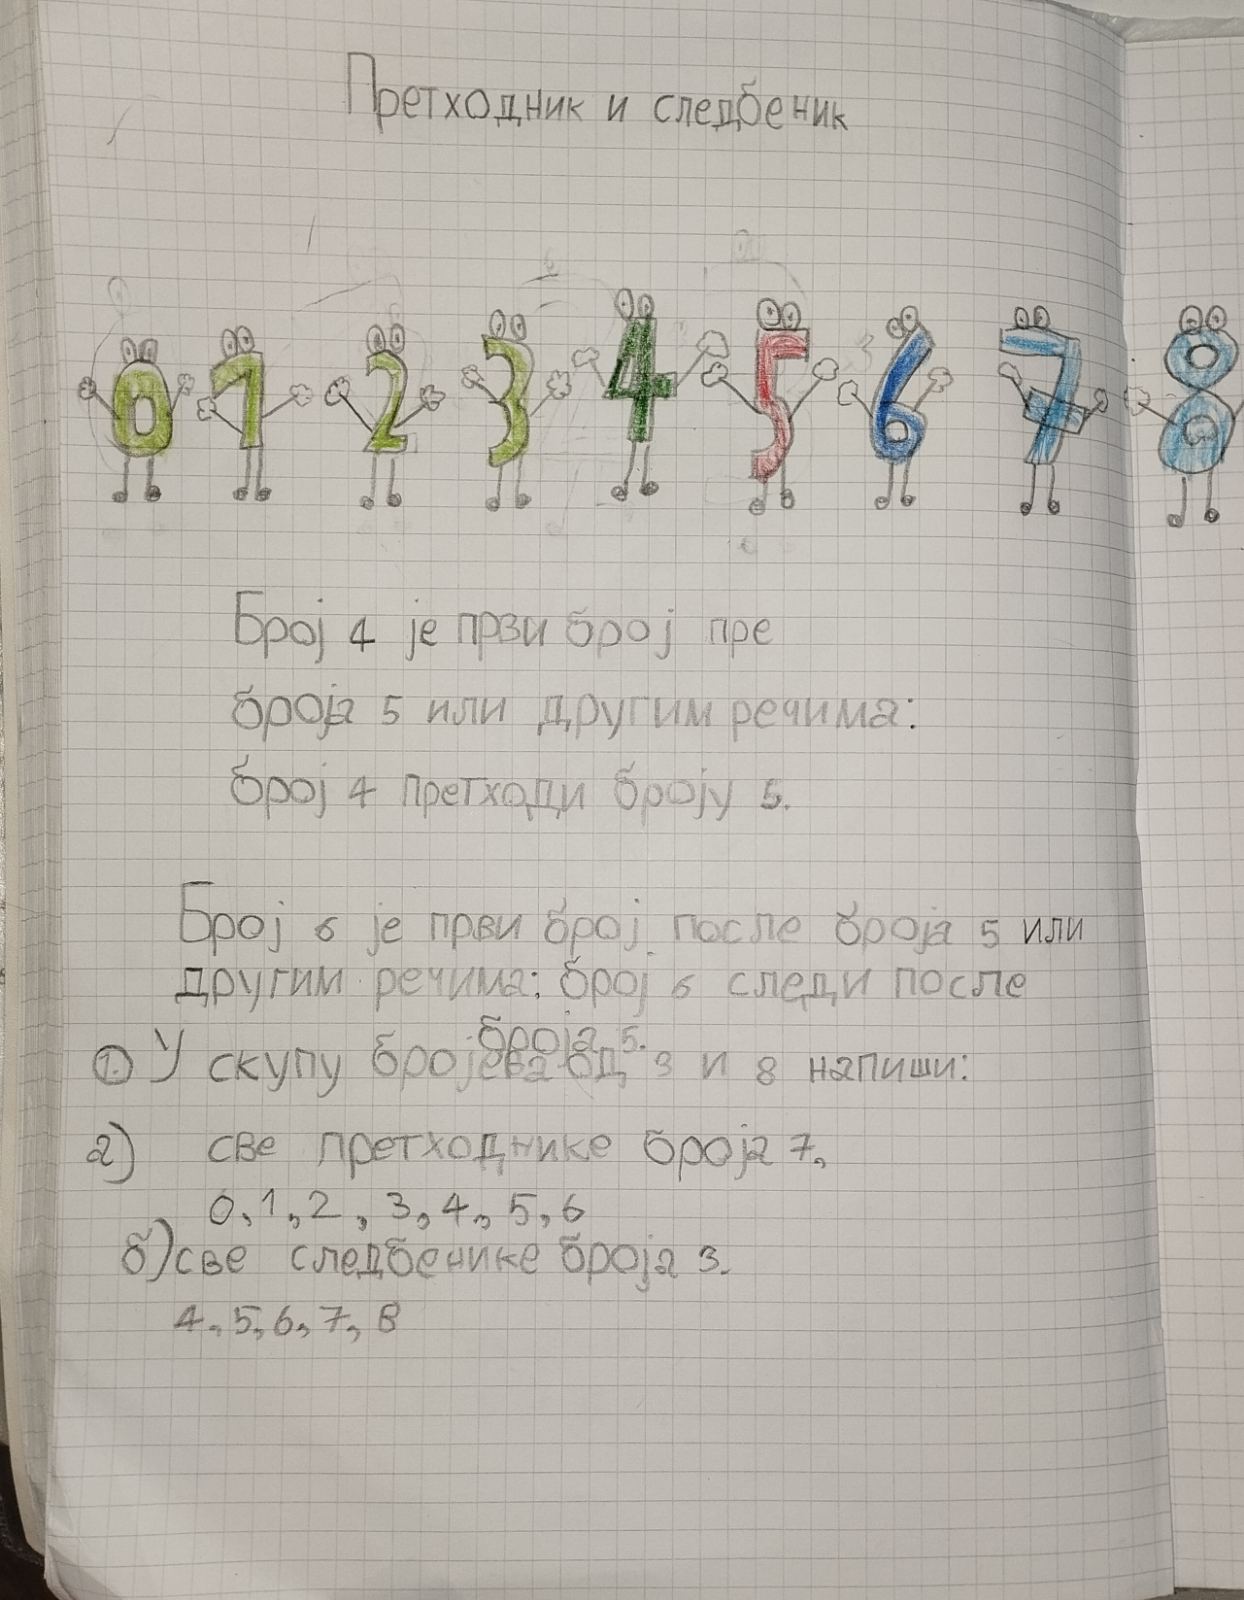 Претходник и следбеник
0 1 2 3 4 5 6 7 8
Број 4 је први број пре
броја 5 или другим речима:
број 4 претходи броју 5.
Број 6 је први број после броја 5 или
другим речима: број 6 следи после
броја 5.
1. У скупу бројева од 3 и 8 напиши:
а) све претходнике броја 7,
0, 1, 2, 3, 4, 5, 6
б) све следбенике броја 3.
4, 5, 6, 7, 8